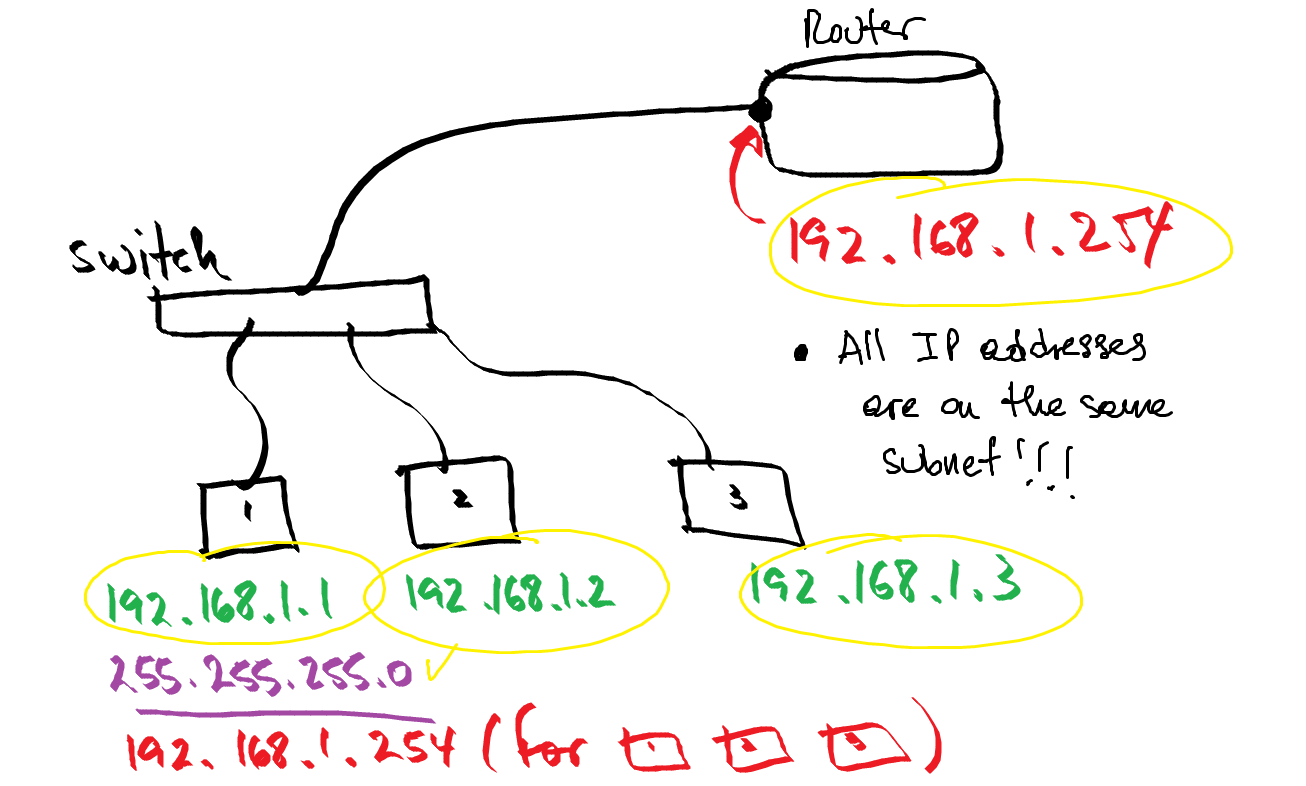 Router
192.168.1.254
switch
• All IP addresses
are on the same
subnet!!!
1
2
3
192.168.1.1
192.168.1.2
192.168.1.3
255.255.255.0
192.168.1.254 (for 1 2 3)